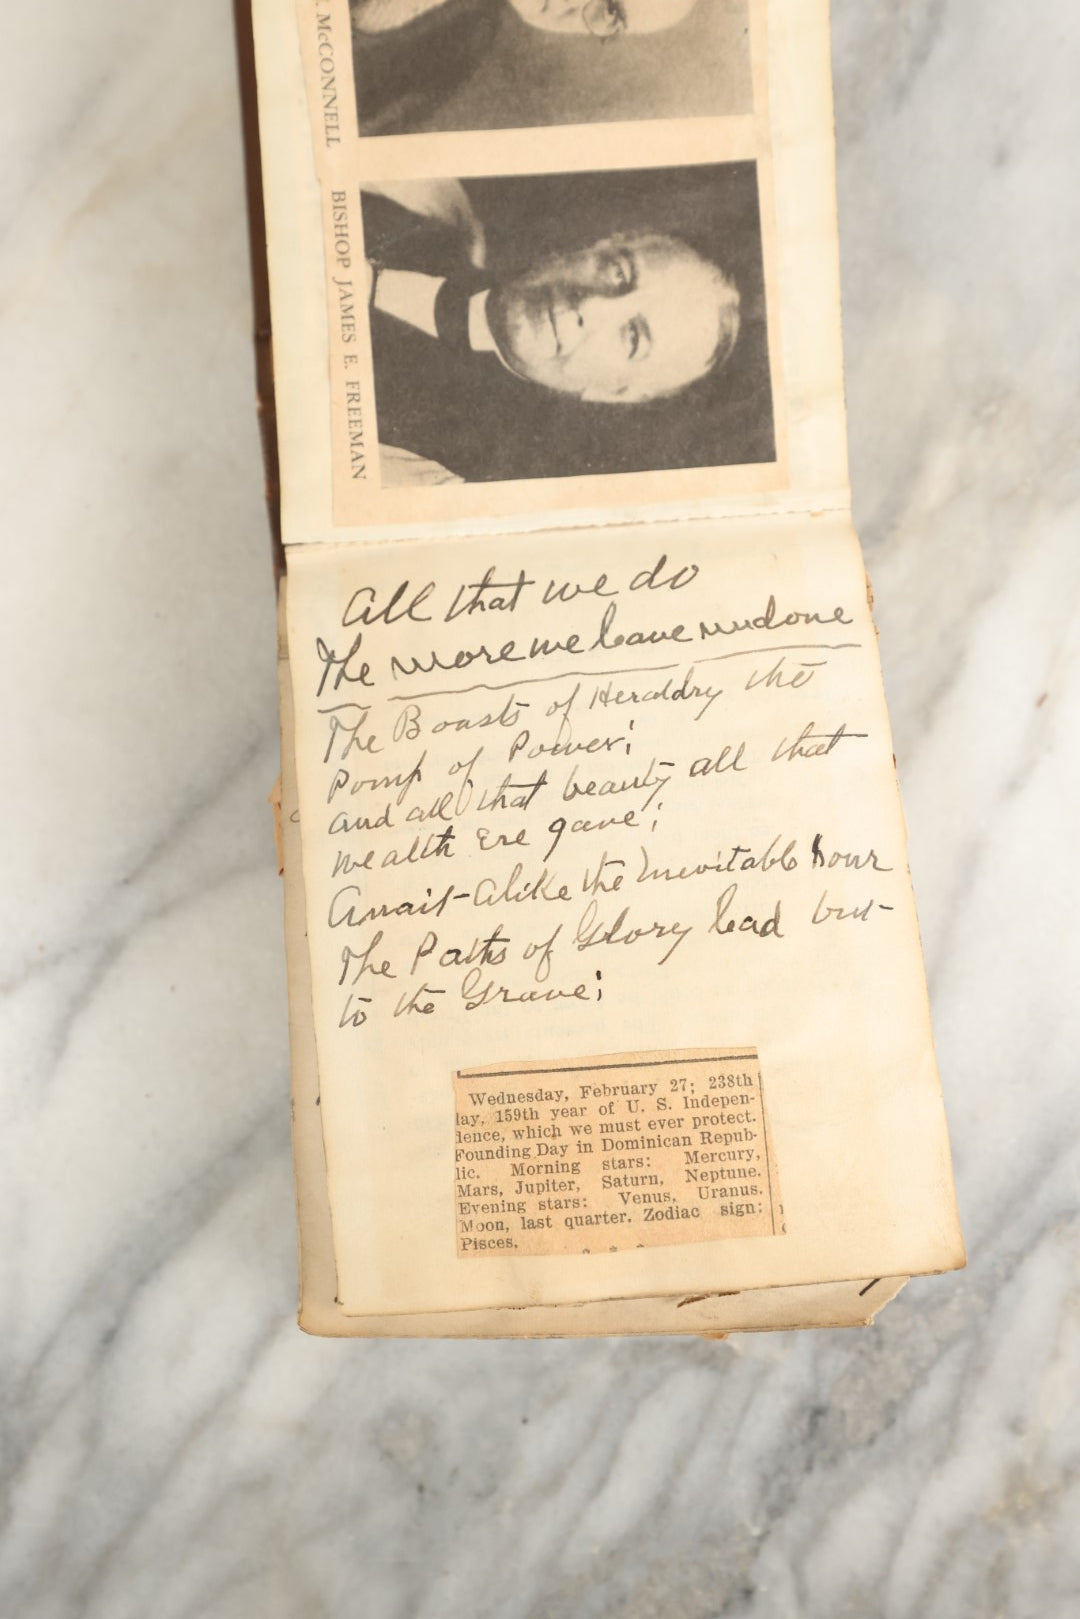 McCONNELL
BISHOP JAMES E. FREEMAN
All that we do
The more we leave undone
The Boasts of Heraldry the
Pomp of Power;
and all that beauty all that
wealth Ere gave;
Await Alike the Inevitable hour
The Paths of Glory lead but
to the Grave;
Wednesday, February 27; 238th
lay, 159th year of U. S. Indepen-
lence, which we must ever protect.
Founding Day in Dominican Repub-
lic. Morning stars: Mercury,
Mars, Jupiter, Saturn, Neptune.
Evening stars: Venus, Uranus.
Moon, last quarter. Zodiac sign:
Pisces.